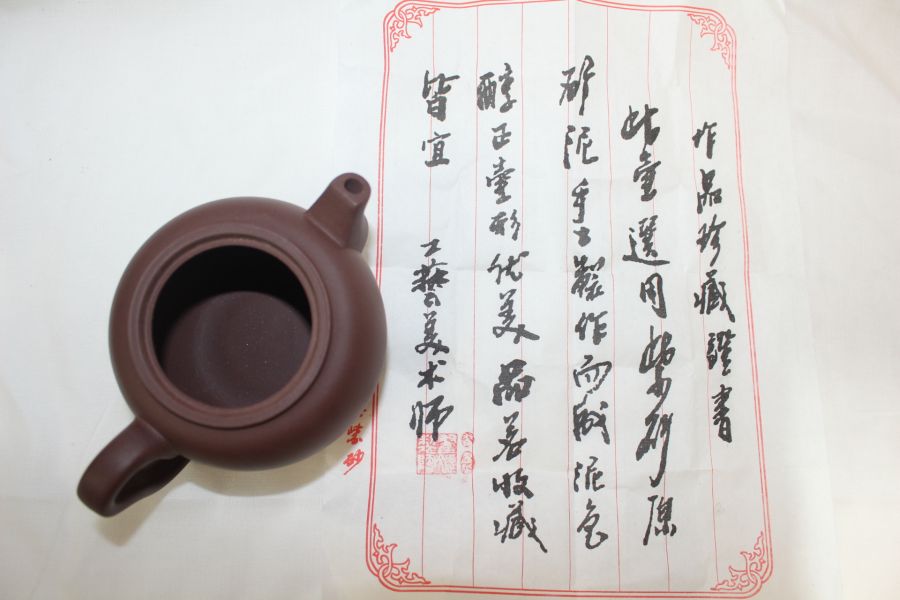 作品珍藏證書
此壶選用紫砂原
矿泥手工製作而成泥色
醇正壶形优美品茗收藏
皆宜 工藝美术师
紫砂